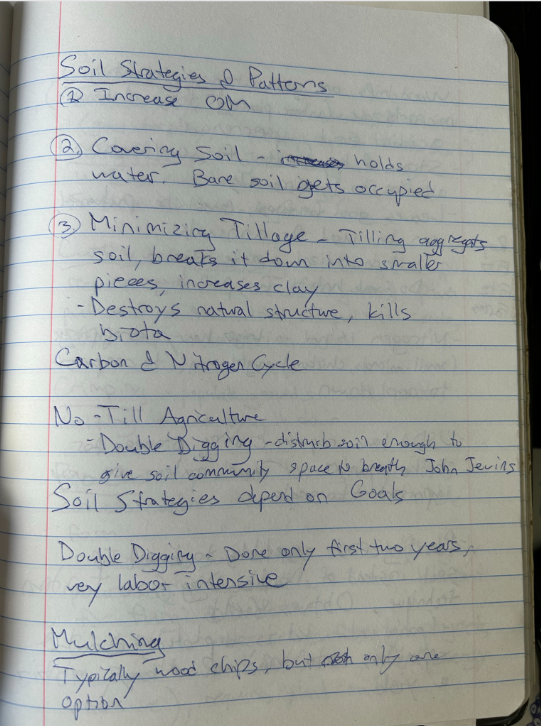 Soil Strategies & Patterns
① Increase OM
② Covering Soil - holds
water. Bare soil gets occupied
③ Minimizing Tillage - Tilling aggregats
soil, breaks it down into smaller
pieces, increases clay
- Destroys natural structure, kills
biota
Carbon & Nitrogen Cycle
No-Till Agriculture
- Double Digging - disturb soil enough to
give soil community space to breath, John Jevins
Soil Strategies depend on Goals
Double Digging - Done only first two years,
very labor intensive
Mulching
Typically wood chips, but only one
option